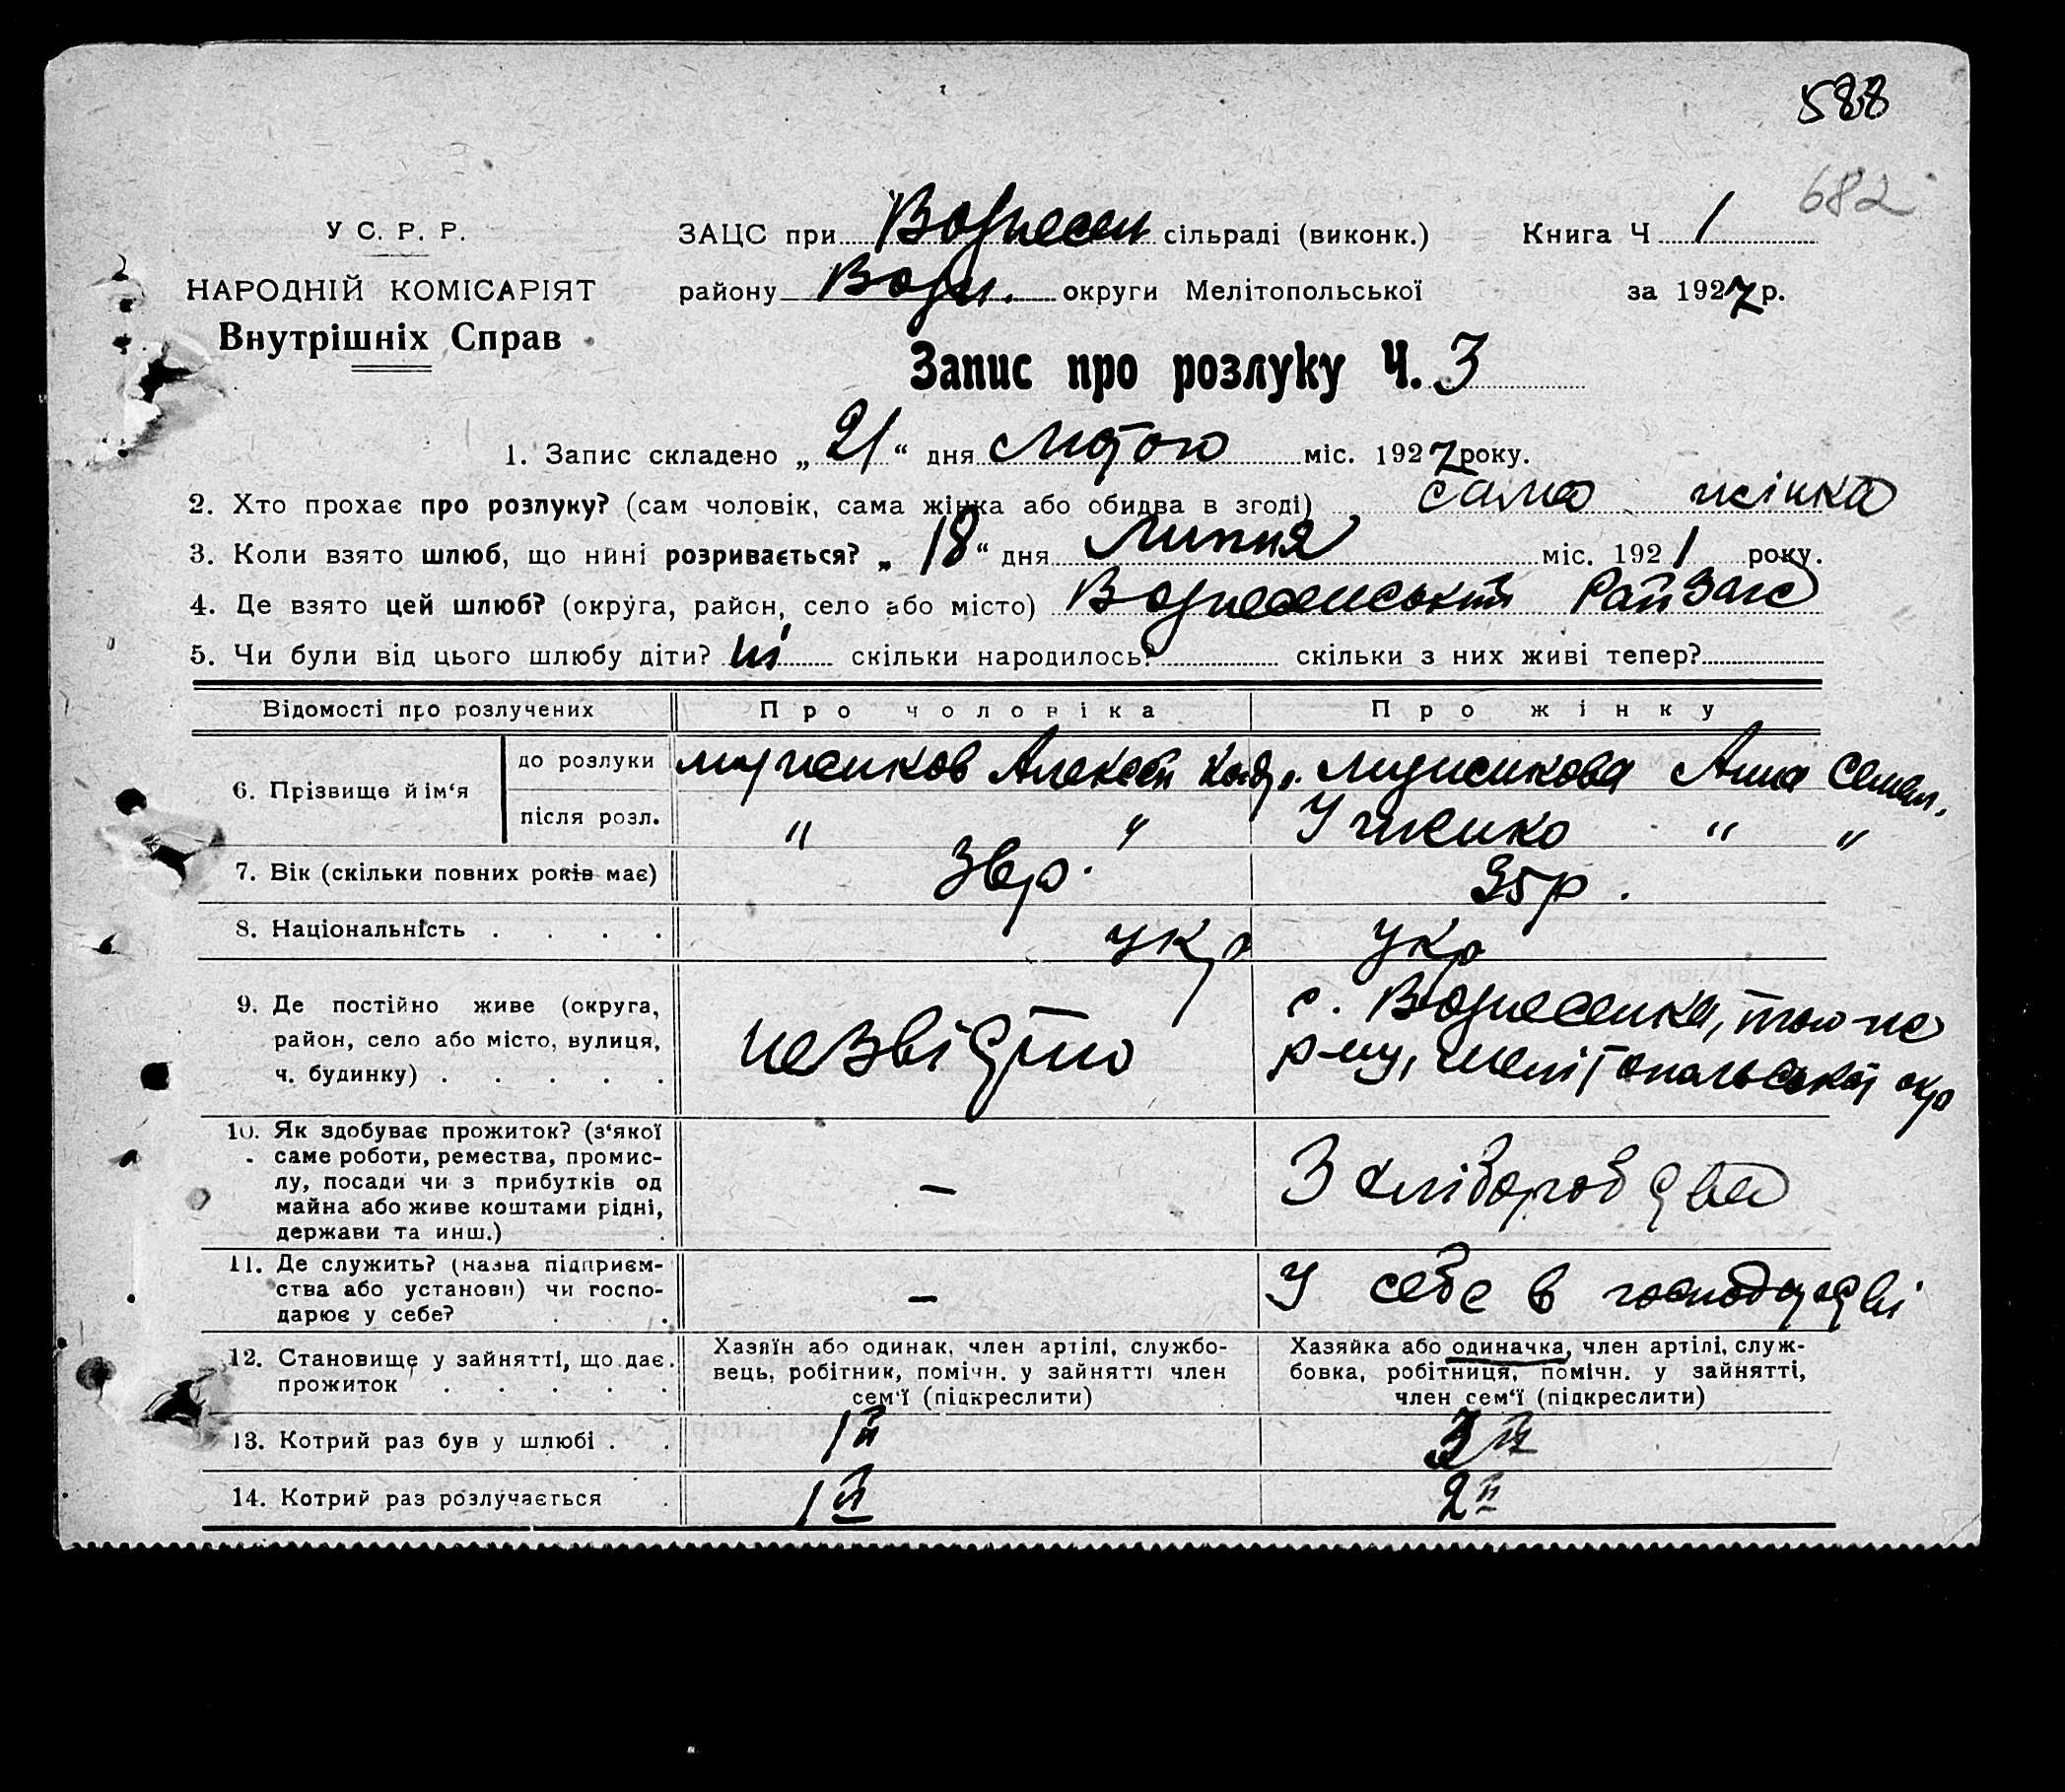 588
682
У С. Р. Р.
НАРОДНІЙ КОМІСАРІЯТ
Внутрішніх Справ
ЗАЦС при Вознесен сільраді (виконк.) Книга Ч 1
району Возн. округи Мелітопольської за 1927 р.
Запис про розлуку Ч. 3
1. Запис складено „ 21 “ дня Лютого міс. 1927 року.
2. Хто прохає про розлуку? (сам чоловік, сама жінка або обидва в згоді) сама жінка
3. Коли взято шлюб, що нині розривається? „ 18 “ дня Липня міс. 1921 року.
4. Де взято цей шлюб? (округа, район, село або місто) Вознесенський РайЗагс
5. Чи були від цього шлюбу діти? ні скільки народилось? скільки з них живі тепер?
Відомості про розлучених Про чоловіка Про жінку
6. Прізвище й ім‘я
до розлуки Алексей Анна Семен.
після розл. " " " "
7. Вік (скільки повних років має) 36 р. 35 р.
8. Національність . . . . укр укр
9. Де постійно живе (округа,
район, село або місто, вулиця,
ч. будинку) . . . . .
незвістно
с. Вознесенка, того-же
р-ну, Мелітопольської окр
10. Як здобуває прожиток? (з‘якої
саме роботи, ремества, промис-
лу, посади чи з прибутків од
майна або живе коштами рідні,
держави та инш.)
— З хліборобства
11. Де служить? (назва підприєм-
ства або установи) чи госпо-
дарює у себе?
— У себе в господарстві
12. Становище у зайнятті, що дає
прожиток . . . . .
Хазяїн або одинак, член артілі, службо-
вець, робітник, помічн. у зайнятті член
сем‘ї (підкреслити)
Хазяйка або одиначка, член артілі, служ-
бовка, робітниця, помічн. у зайнятті,
член сем‘ї (підкреслити)
13. Котрий раз був у шлюбі . . 1й 3й
14. Котрий раз розлучається . 1й 2й